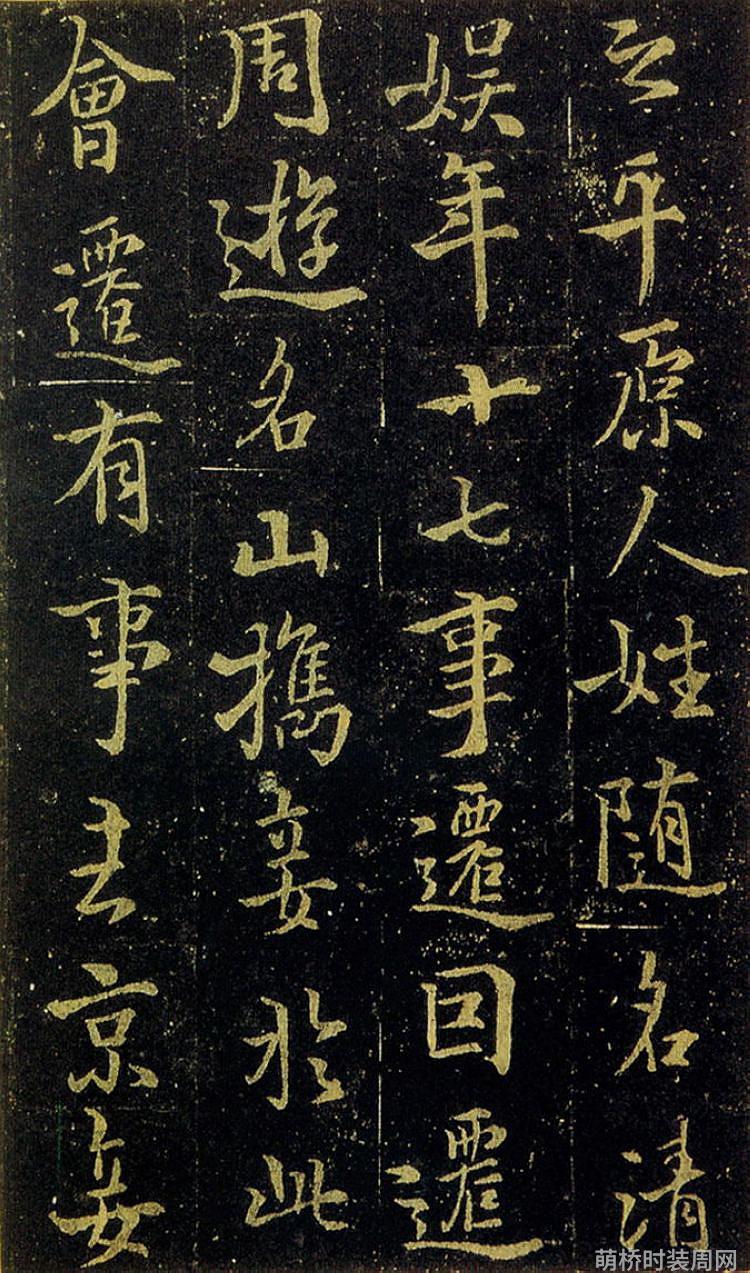 之平原人姓随名清
娱年十七事遷因遷
周遊名山攜妾於此
會遷有事去京妾
萌桥时装周网